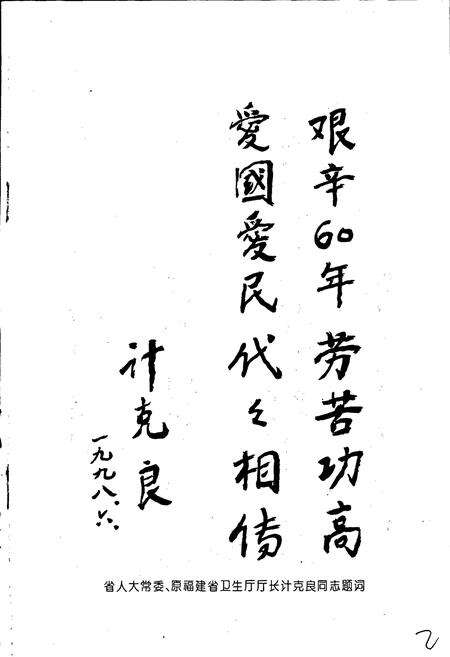 艰辛60年劳苦功高
愛國愛民代々相传
计克良
一九九八.六.
省人大常委、原福建省卫生厅厅长计克良同志题词
2